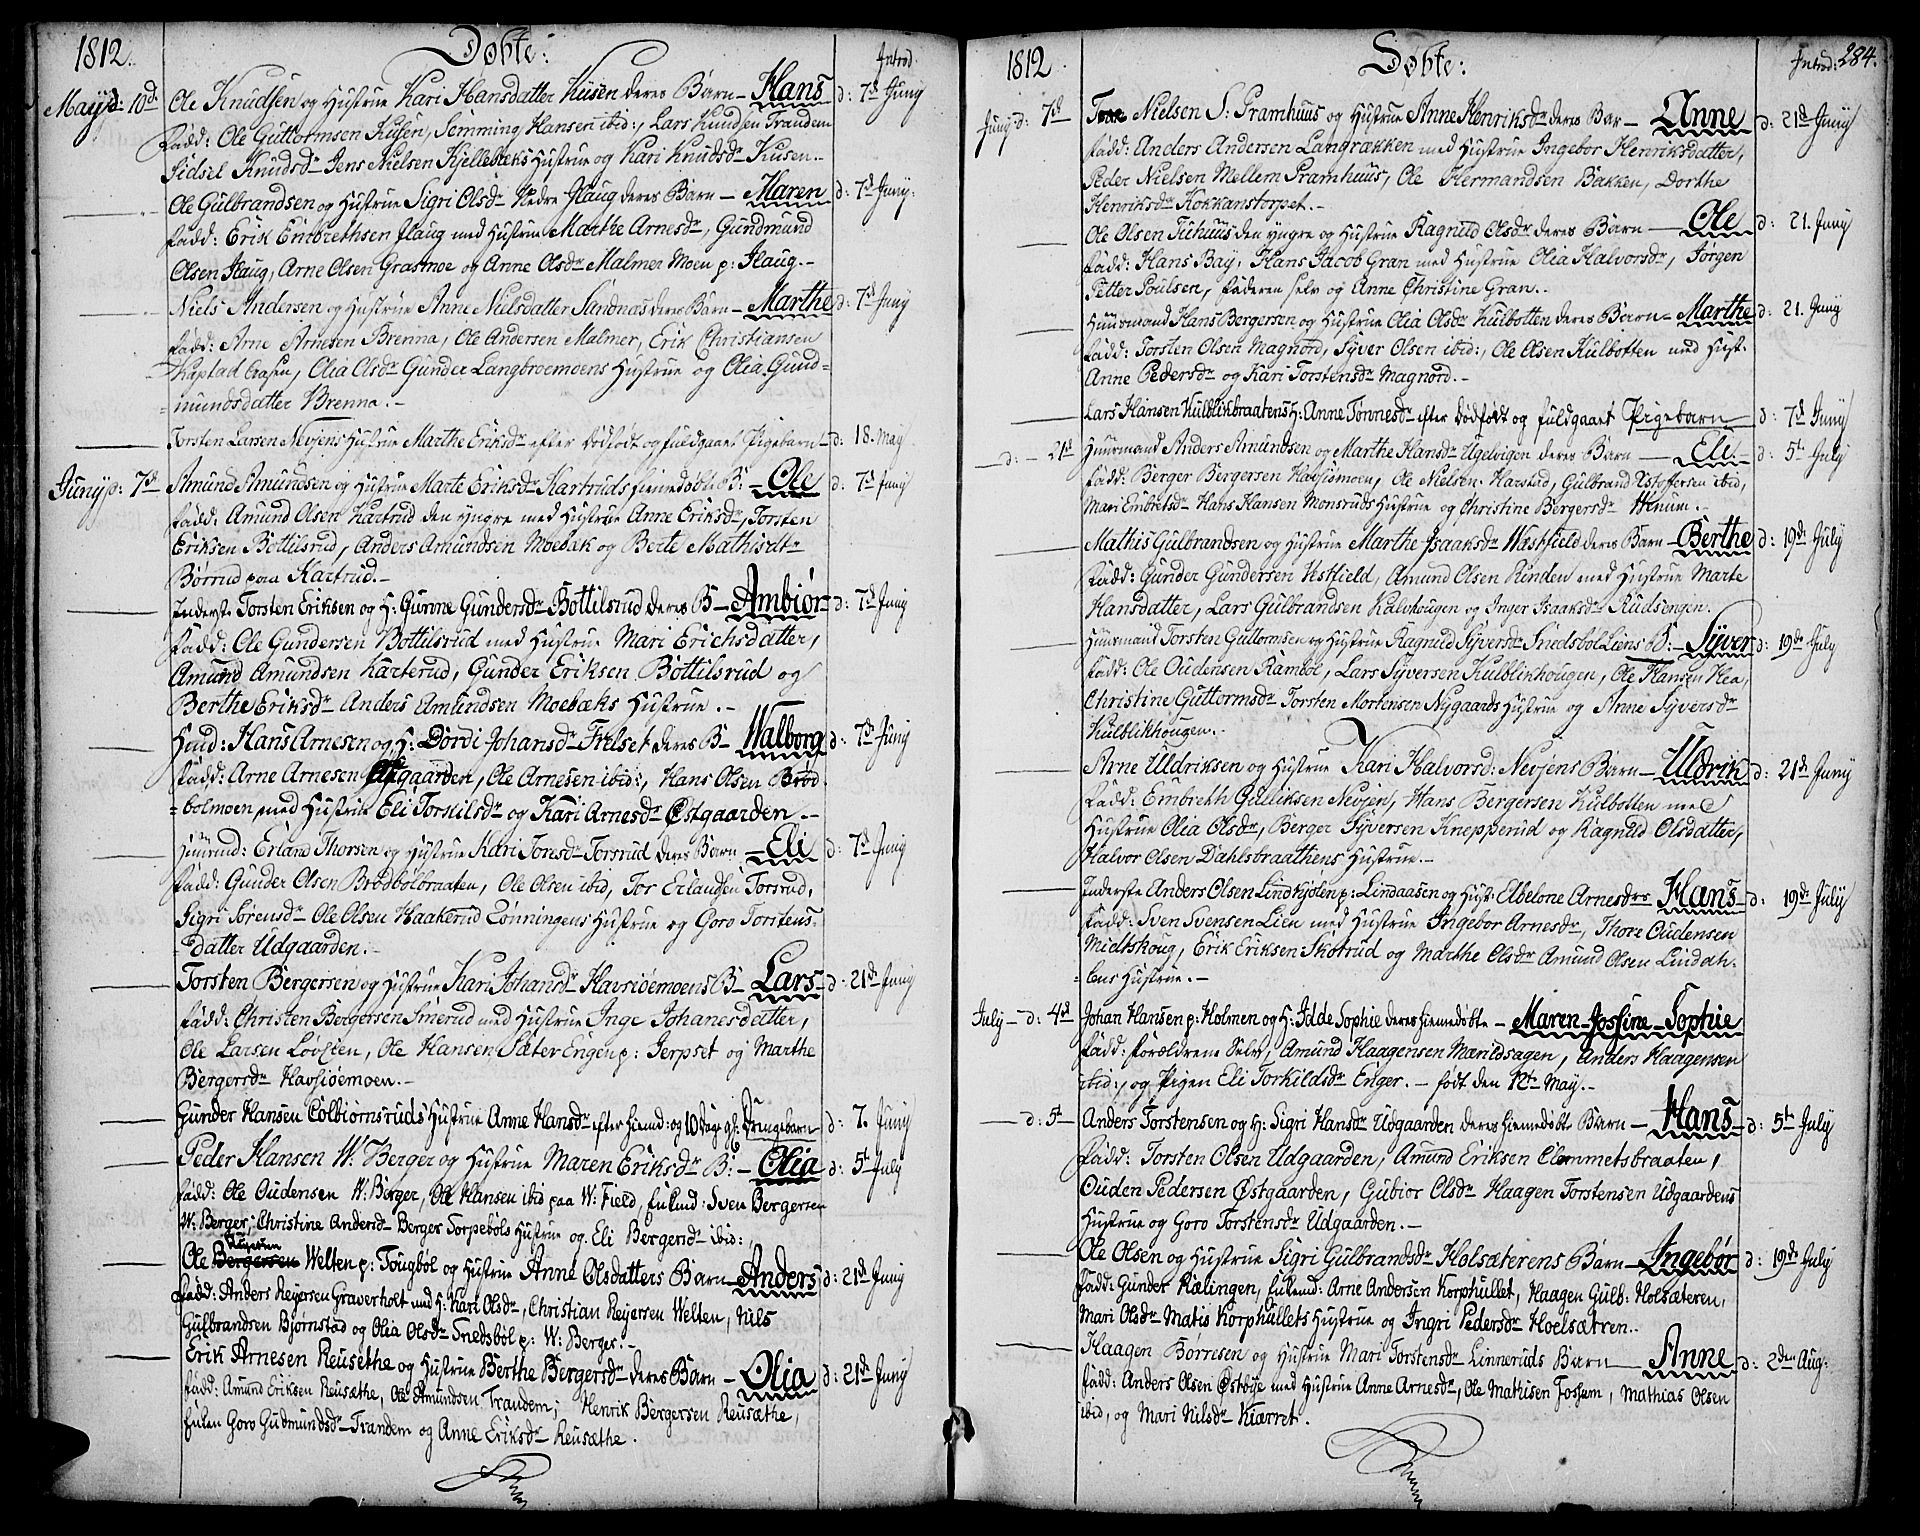 1812. Döbte: Introd.
Mayj d: 10d. Ole Knudsen og Hustrue Kari Hansdatter Kusen deres Barn - Hans d: 7d Junÿ
fadd: Ole Guttormsen Kusen, Semming Hansen ibid:, Lars Knudsen Trandem
Sidsel Knudsdr Jens Nielsen Kjellebæks Hustrue og Kari Knudsdr Kusen.
Ole Gulbrandsen og Hustrue Sigri Olsdr Nedre Haug deres Barn - Maren d: 7d Junÿ:
fadd: Erik Embrethsen Haug med Hustrue Marthe Arnesdr, Gundmund
Olsen Haug, Arne Olsen Grasmoe og Anne Olsdr Malmer Moen p: Haug.-
Niels Andersen og Hustrue Anne Nielsdatter Sandnæs deres Barn - Marthe d: 7d Junÿ
fadd: Arne Arnesen Brenna, Ole Andersen Malmer, Erik Christiansen
Kapstad Enasen, Olia Olsdr Gunder Langbroemoens Hustrue og Olia Gund=
=mundsdatter Brenna.-
Torsten Larsen Nevjens Hustrue Marthe Eriksdr efter Dödfödt og fuldgaaet Pigebarn - d: 18. May
Junÿ d: 7d Amund Amundsen og Hustrue Marte Eriksdr Kartruds hiemedöbte B: - Ole d: 7d Junÿ
fadd: Amund Olsen Kartrud den yngre med Hustrue Anne Eriksdr, Torsten
Eriksen Bottilsrud, Anders Amundsen Moebæk og Berte Mathisdtr
Börrud paa Kartrud.-
Inderste Torsten Eriksen og H: Gunne Gundersdr Bottilsrud deres B - Ambiör d: 7d Junÿ
fadd: Ole Gundersen Bottilsrud med Hustrue Mari Erichsdatter,
Amund Amundsen Karterud, Gunder Eriksen Böttilsrud og
Berthe Eriksdr Anders Amundsen Moebæks Hustrue.-
Huusd: Hans Arnesen og H: Dordi Johansdr Frelset deres B - Walborg d: 7d Junÿ
fadd: Arne Arnesen Östgaarden, Ole Arnesen ibid:, Hans Olsen Bröd=
=bolmoen med Hustrue Eli Torkilsdr og Kari Arnesdr Östgaarden.-
Huusmd: Erland Thorsen og Hustrue Kari Toresdr Torsrud deres Barn - Eli d: 7d Junÿ
fadd: Gunder Olsen Brödbölbraaten, Ole Olsen ibid, Tor Erlandsen Torsrud,
Sigri Sörensdr Ole Olsen Haakerud Lönningens Hustrue og Goro Torstens=
=datter Udgaarden.-
Torsten Bergersen og Hustrue Kari Johansdr Havsiöemoens B - Lars d: 21de Junÿ
fadd: Christen Bergersen Smerud med Hustrue Inge Johanesdatter,
Ole Larsen Lövlien, Ole Hansen Sæter Engen p: Jerpset og Marthe
Bergersdr Havsiöemoen.-
Gunder Hansen Colbiörnsruds Hustrue Anne Hansdr efter hiemd: og 10 Dage gl. Drengebarn d: 7. Junÿ
Peder Hansen W: Berger og Hustrue Maren Eriksdr B: - Olia d: 5t July
fadd: Ole Oudensen W: Berger, Ole Hansen ibid paa W: Field, Enlmd: Sven Bergersen
W: Berger, Christine Andersdr Berger Torpeböls Hustrue og Eli Bergersdr ibid:,
Ole Reyersen Welten p: Tougböl og Hustrue Anne Olsdatters Barn - Anders d: 21d Junÿ
fadd: Anders Reyersen Graverholt med H: Kari Olsdr, Christian Reyersen Welten, Nils
Gulbrandsen Björnstad og Olia Olsdr Snedsböl p: W: Berger.-
Erik Arnesen Reusethe og Hustrue Berthe Bergersdr deres Barn - Olia d: 21d Junÿ
fadd: Amund Eriksen Reusæthe, Ole Amundsen Trandem, Henrik Bergersen Reusæthe,
Enken Goro Gudmundsdr Trandem og Anne Eriksdr Reusæthe.
1812. Döbte: Introd: 284.
Junÿ d: 7d Tore Nielsen S: Pramhuus og Hustrue Anne Henriksdr deres Bar - Anne d: 21d Junÿ
fadd: Anders Andersen Langrækken med Hustrue Ingebor Henriksdatter,
Peder Nielsen Mellem Pramhuus, Ole Hermandsen Bakken, Dorthe
Henriksdr Kokkanstorpet.-
Ole Olsen Tiehuus den yngre og Hustrue Ragnild Olsdr deres Barn - Ole d: 21. Junÿ
fadd: Hans Bay, Hans Jacob Gran med Hustrue Olia Halvorsdr, Jörgen
Petter Poulsen, Faderen selv og Anne Christine Gran.-
Huusmand Hans Bergersen og Hustrue Olia Olsdr Kulbotten deres Barn - Marthe d: 21. Junÿ
fadd: Torsten Olsen Magnord, Syver Olsen ibid:, Ole Olsen Kulbotten med Hust.
Anne Pedersdr og Kari Torstensdr Magnord.-
Lars Hansen Kulblikbraatens H: Anne Tönnesdr efter Dödfödt og fuldgaaet Pigebarn d: 7d Junÿ
d: 21d Huusmand Anders Amundsen og Marthe Hansdr Ugelvigen deres Barn - Eli d: 5t July
fadd: Berger Bergersen Havsiömoen, Ole Nielsen Harstad, Gulbrand Kstoffersen ibid,
Mari Embretsdr Hans Hansen Monsruds Hustrue og Christine Bergersdr Wenum.-
Mathis Gulbrandsen og Hustrue Marthe Isaaksdr Westfield deres Barn - Berthe d: 19de July
fadd: Gunder Gundersen Vestfield, Amund Olsen Rinden med Hustrue Marte
Hansdatter, Lars Gulbrandsen Kalvhougen og Inger Isaaksdr Rudsengen.
Huusmand Torsten Guttormsen og Hustrue Ragnild Syversdr Snedsböl Liens B: - Syver d: 19de July
fadd: Ole Oudensen Ramböl, Lars Syversen Kulblikhougen, Ole Hansen Hea,
Christine Guttormsdr Torsten Mortensen Nygaards Hustrue og Anne Syversdr
Kulblikhougen.-
Arne Uldriksen og Hustrue Kari Halvorsd: Nevjens Barn - Uldrik d: 21de Junÿ
fadd: Embreth Gulliksen Nevjen, Hans Bergersen Kulbotten med
Hustrue Olia Olsdr, Berger Syversen Knepperud og Ragnild Olsdatter,
Halvor Olsen Dahlsbraathens Hustrue.-
Inderste Anders Olsen Lindkjölen p: Lindaasen og Hust: Abelone Arnesdrs Hans d: 19de July
fadd: Sven Svensen Lien med Hustrue Ingebor Arnesdr, Thore Oudensen
Mialtskoug, Erik Eriksen Skotrud og Marthe Olsdr Amund Olsen Lindah=
=lens Hustrue.-
July - d: 4d Johan Hansen p: Holmen og H: Idde Sophie deres hiemedöbte - Maren-Jossine-Sophie
fadd: Forældrene Selv, Amund Haagensen Marildsagen, Anders Haagensen
ibid:, og Pigen Eli Torkildsdr Enger.- födt den 12te May.-
d: 5t Anders Torstensen og H: Sigri Hansdr Udgaarden deres hiemedöbte Barn - Hans d: 5t July
fadd: Torsten Olsen Udgaarden, Amund Eriksen Clemmetsbraaten,
Ouden Pedersen Östgaarden, Gubiör Olsdr Haagen Torstensen Udgaardens
Hustrue og Goro Torstensdr Udgaarden.-
Ole Olsen og Hustrue Sigri Gulbrandsdr Holsæterens Barn - Ingebör d: 19de July
fadd: Gunder Kölingen, Enkemd: Arne Andersen Korphullet, Haagen Gulb: Holsæteren,
Mari Olsdr Matis Korphullets Hustrue og Ingri Pedersdr Hoelsætren.
Haagen Börresen og Hustrue Mari Torstensdr Linneruds Barn - Anne d: 2den Aug:
fadd: Anders Olsen Östbye med Hustrue Anne Arnesdr, Ole Mathisen Fossum, Mathias Olsen
ibid, og Mari Nilsdr Kiærret.